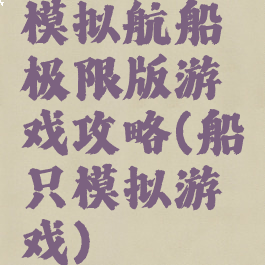 模拟航船
极限版游
戏攻略(船
只模拟游
戏)